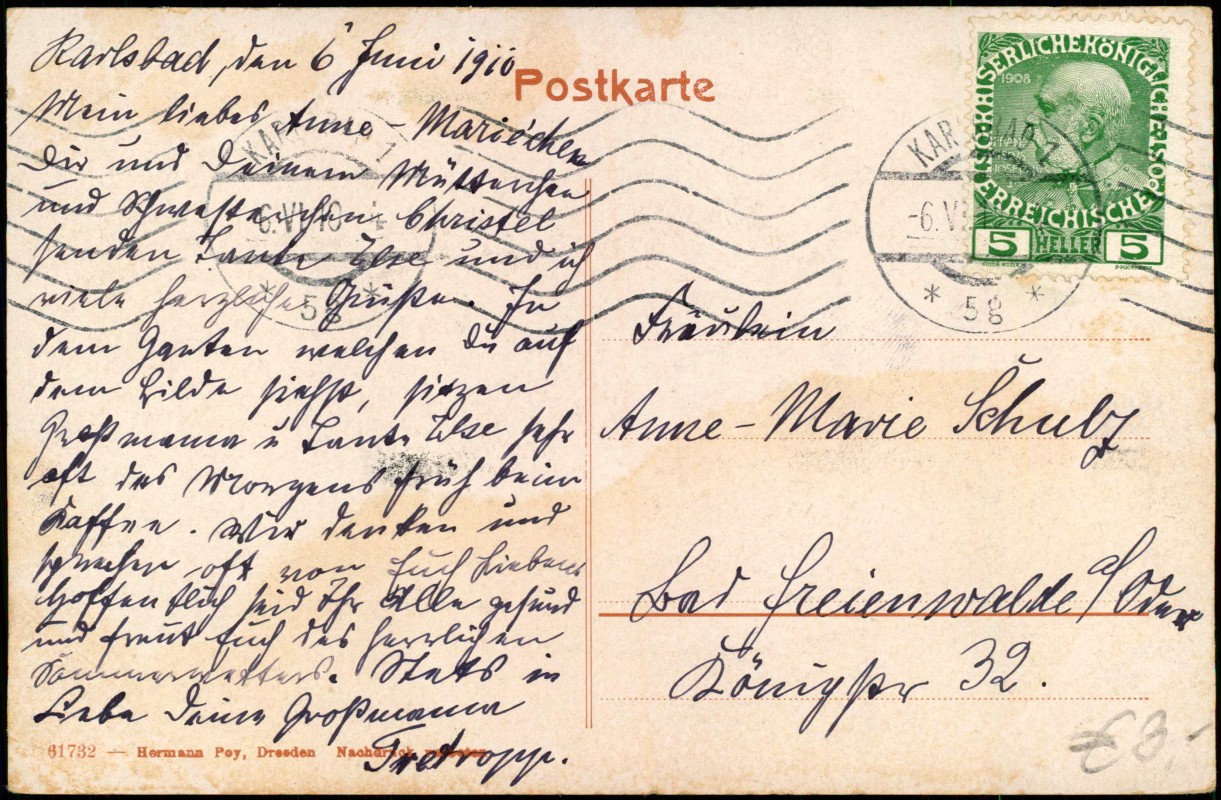 Karlsbad, den 6 Juni 1910
Postkarte
Mein liebes Anne-Mariechen
Dir und Deinem Mütterchen
und Schwesterchen Christel
senden Tante Else und ich
viele herzliche Grüße. In
dem Garten welchen Du auf
dem Bilde siehst, sitzen
Großmama u Tante Else sehr
oft des Morgens früh beim
Kaffee. Wir denken und
sprechen oft von Euch Lieben
Hoffentlich seid Ihr Alle gesund
und freut Euch des herrlichen
Sommerwetters. Stets in
Liebe Deine Großmama
61732 — Hermann Poy, Dresden Nachdruck verboten
KAISERLICHEKÖNIGLICHE ÖSTERREICHISCHE POST
1908
5 HELLER 5
KARLSBAD 1
-6.VI.10
* 5g *
Fräulein
Anne-Marie Schulz
Bad Freienwalde a/Oder
Königstr 32.
€3,-